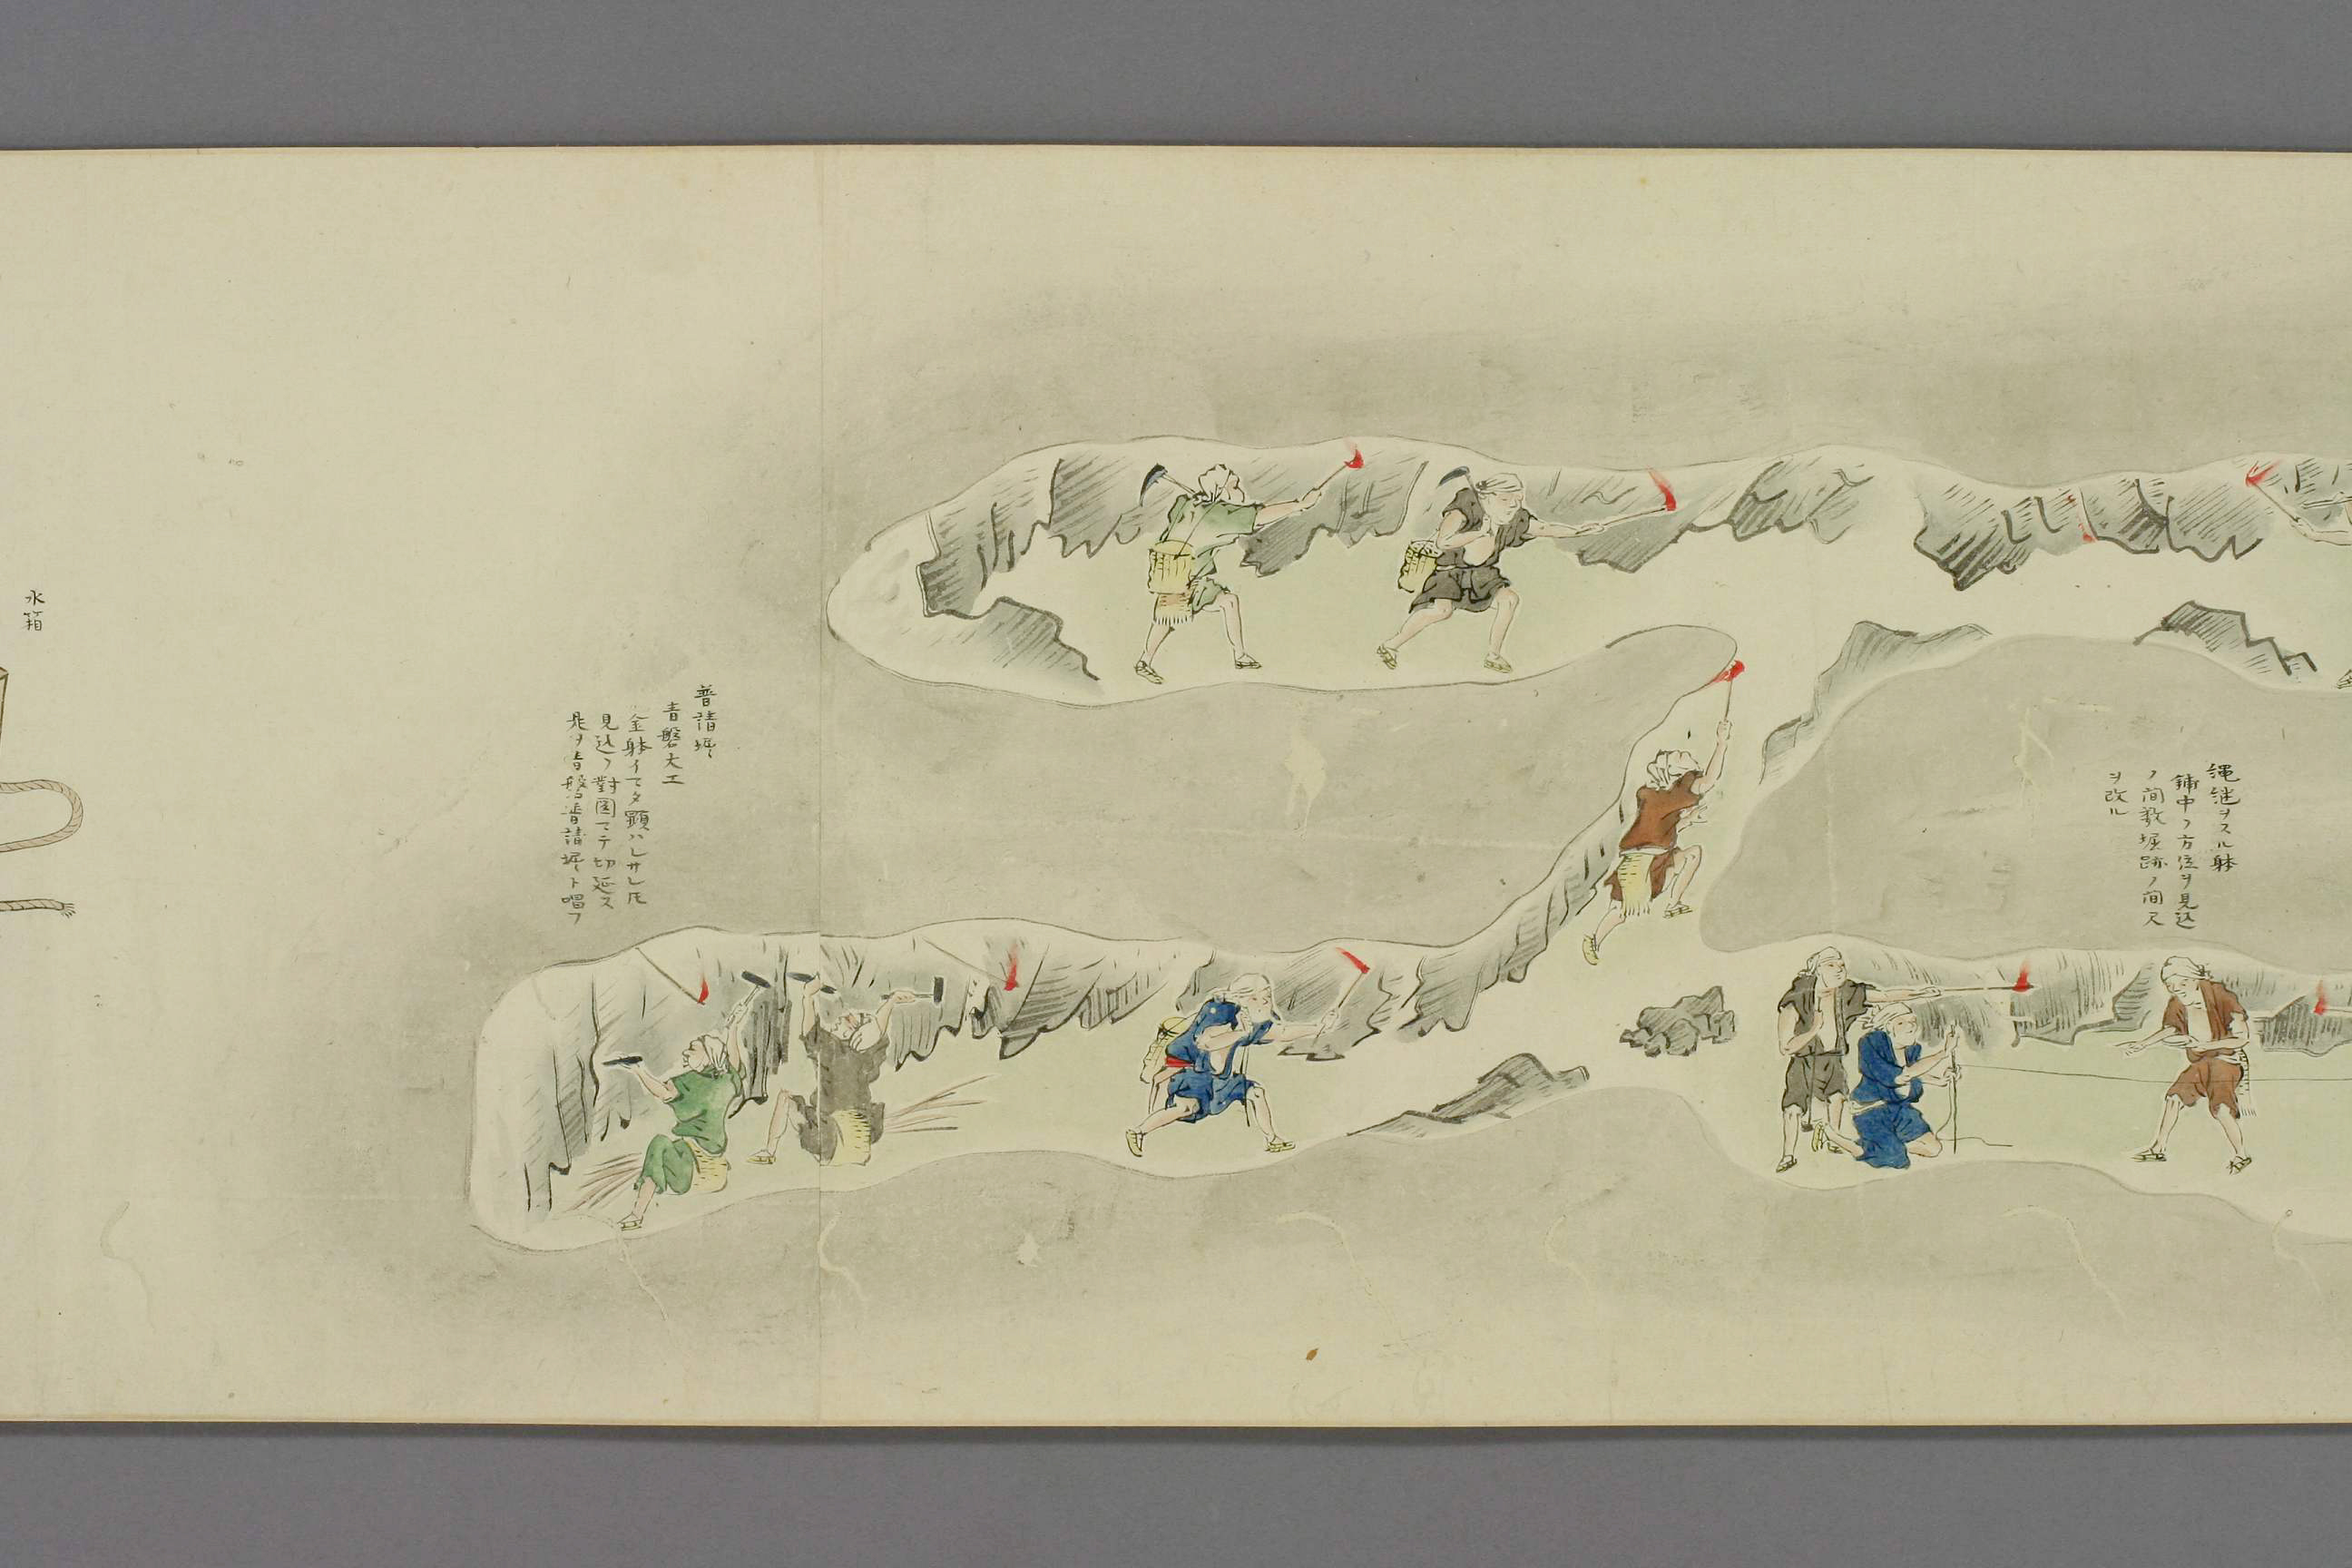 縄継ヲスル躰
鋪中ノ方位ヲ見込
ノ間数堀跡ノ間尺
ヲ改ル
普請堀
青盤大工
金躰イマタ顕ハレサレ𪜈
見込ノ對図マテ切延ス
是ヲ青盤普請堀ト唱フ
水箱